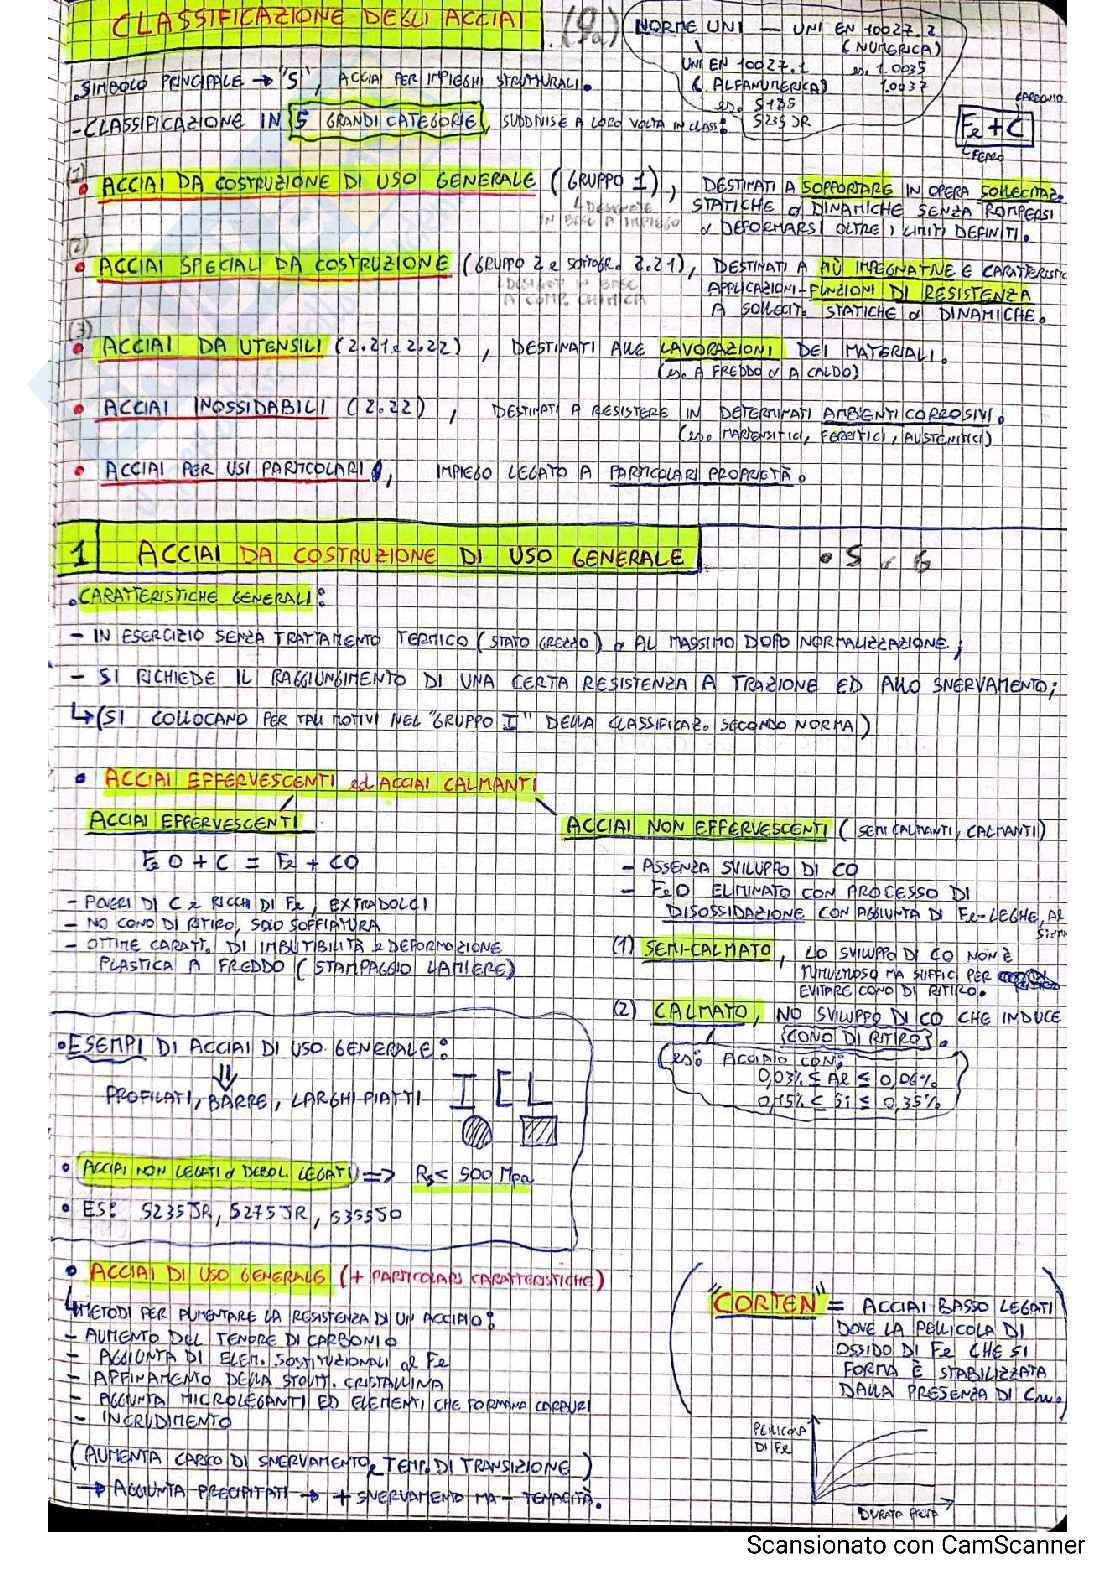 CLASSIFICAZIONE DEGLI ACCIAI (9a)
NORME UNI — UNI EN 10027.2
(NUMERICA)
UNI EN 10027.1 es. 1.0035
(ALFANUMERICA) 1.0037
es. S185
S235 JR
• SIMBOLO PRINCIPALE → "S", ACCIAI PER IMPIEGHI STRUTTURALI.
- CLASSIFICAZIONE IN 5 GRANDI CATEGORIE, SUDDIVISE A LORO VOLTA IN CLASSI:
CARBONIO
Fe + C
FERRO
(1)
• ACCIAI DA COSTRUZIONE DI USO GENERALE (GRUPPO 1), DESTINATI A SOPPORTARE IN OPERA SOLLECITAZ.
↳ DESIGNATE STATICHE o DINAMICHE SENZA ROMPERSI
IN BASE A IMPIEGO o DEFORMARSI OLTRE I LIMITI DEFINITI.
(2)
• ACCIAI SPECIALI DA COSTRUZIONE (GRUPPO 2 e SOTTOGR. 2.21), DESTINATI A PIÙ IMPEGNATIVE E CARATTERISTIC
IN BASE APPLICAZIONI-FUNZIONI DI RESISTENZA
A COMP. CHIMICA A SOLLECIT. STATICHE o DINAMICHE.
(3)
• ACCIAI DA UTENSILI (2.21 e 2.22), DESTINATI ALLE LAVORAZIONI DEI MATERIALI.
(es. A FREDDO o A CALDO)
• ACCIAI INOSSIDABILI (2.22), DESTINATI A RESISTERE IN DETERMINATI AMBIENTI CORROSIVI.
(es. MARTENSITICI, FERRITICI, AUSTENITICI)
• ACCIAI PER USI PARTICOLARI, IMPIEGO LEGATO A PARTICOLARI PROPRIETÀ.
1 ACCIAI DA COSTRUZIONE DI USO GENERALE • 5. 6
• CARATTERISTICHE GENERALI:
- IN ESERCIZIO SENZA TRATTAMENTO TERMICO (STATO GREZZO) o AL MASSIMO DOPO NORMALIZZAZIONE;
- SI RICHIEDE IL RAGGIUNGIMENTO DI UNA CERTA RESISTENZA A TRAZIONE ED ALLO SNERVAMENTO;
↳ (SI COLLOCANO PER TALI MOTIVI NEL "GRUPPO I" DELLA CLASSIFICAZ. SECONDO NORMA)
• ACCIAI EFFERVESCENTI ed ACCIAI CALMANTI
ACCIAI EFFERVESCENTI
FeO + C = Fe + CO
- POVERI DI C e RICCHI DI Fe, EXTRADOLCI
- NO CONO DI RITIRO, SOLO SOFFIATURA
- OTTIME CARATT. DI IMBUTIBILITÀ e DEFORMAZIONE
PLASTICA A FREDDO (STAMPAGGIO LAMIERE)
ACCIAI NON EFFERVESCENTI (SEMI CALMANTI, CALMANTI)
- ASSENZA SVILUPPO DI CO
- FeO ELIMINATO CON PROCESSO DI
DISOSSIDAZIONE CON AGGIUNTA DI Fe-LEGHE, Al
(1) SEMI-CALMATO, LO SVILUPPO DI CO NON È
MA SUFFIC. PER
EVITARE CONO DI RITIRO.
(2) CALMATO, NO SVILUPPO DI CO CHE INDUCE
(CONO DI RITIRO).
(es: ACCIAIO CON:
0,03% ≤ Al ≤ 0,06%
0,15% < Si ≤ 0,35%
• ESEMPI DI ACCIAI DI USO GENERALE:
PROFILATI, BARRE, LARGHI PIATTI
• ACCIAI NON LEGATI o DEBOL. LEGATI => Rs < 500 Mpa
• ES: S235JR, S275JR, S355J0
• ACCIAI DI USO GENERALE (+ PARTICOLARI CARATTERISTICHE)
↳ METODI PER AUMENTARE LA RESISTENZA DI UN ACCIAIO:
- AUMENTO DEL TENORE DI CARBONIO
- AGGIUNTA DI ELEM. SOSTITUZIONALI al Fe
- AFFINAMENTO DELLA STRUTT. CRISTALLINA
- AGGIUNTA MICROLEGANTI ED ELEMENTI CHE FORMANO CARBURI
- INCRUDIMENTO
(AUMENTA CARICO DI SNERVAMENTO e TEMP. DI TRANSIZIONE)
→ AGGIUNTA PRECIPITATI → + SNERVAMENTO MA - TENACITÀ.
"CORTEN" = ACCIAI BASSO LEGATI
DOVE LA PELLICOLA DI
OSSIDO DI Fe CHE SI
FORMA È STABILIZZATA
DALLA PRESENZA DI Cu.
PELLICOLA
DI Fe
DURATA
Scansionato con CamScanner